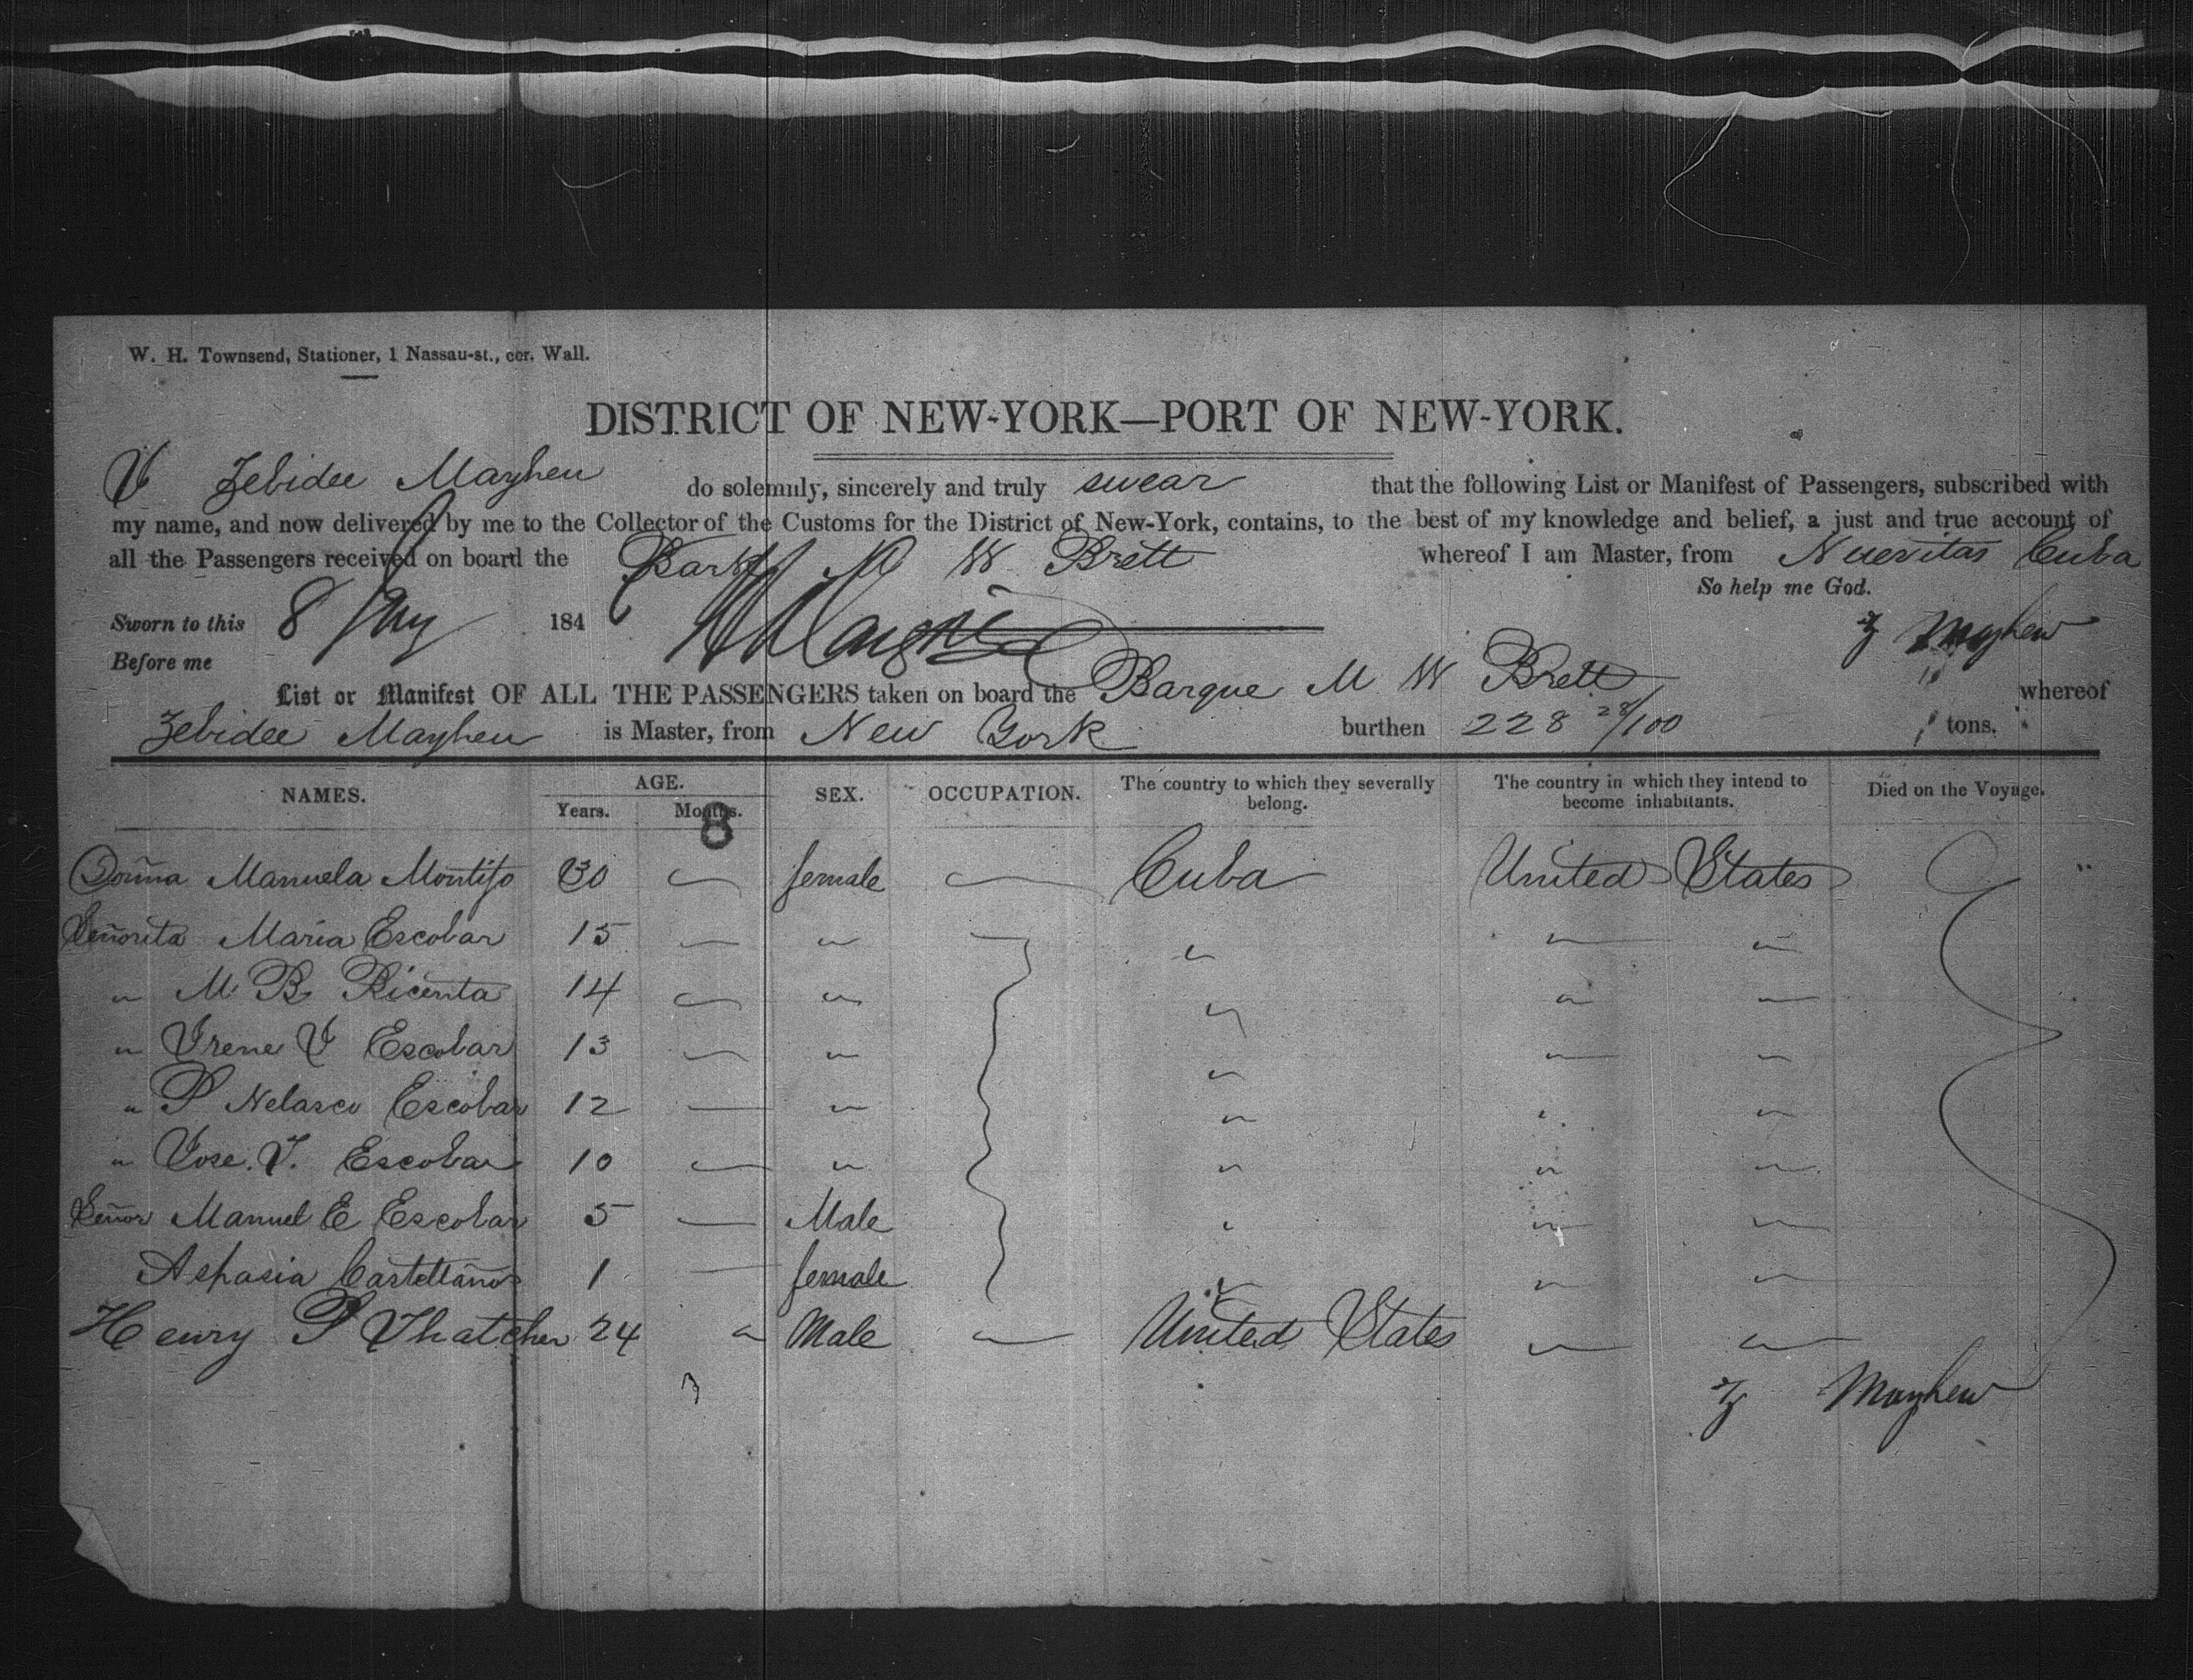 W. H. Townsend, Stationer, 1 Nassau-st., cor. Wall.
DISTRICT OF NEW-YORK—PORT OF NEW-YORK.
I Zebidee Mayhew do solemnly, sincerely and truly swear that the following List or Manifest of Passengers, subscribed with
my name, and now delivered by me to the Collector of the Customs for the District of New-York, contains, to the best of my knowledge and belief, a just and true account of
all the Passengers received on board the Bark M W Brett whereof I am Master, from Nuevitas Cuba
So help me God.
Sworn to this 8 184 Z Mayhew
Before me
List or Manifest OF ALL THE PASSENGERS taken on board the Barque M W Brett whereof
Zebidee Mayhew is Master, from New York burthen 228 28/100 tons.
NAMES. AGE. SEX. OCCUPATION. The country to which they severally belong. The country in which they intend to become inhabitants. Died on the Voyage.
Years. Months.
8
Doña Manuela 30 female Cuba United States
Señorita Maria Escobar 15 " " " "
" M B Ricenta 14 " " " "
" Irene V Escobar 13 " " " "
" P Nelasco Escobar 12 " " " "
" Jose. T. Escobar 10 " " " "
Señor Manuel E Escobar 5 Male " " "
Aspasia Castellanos 1 female " " "
Henry P Thatcher 24 " Male United States " "
Z Mayhew